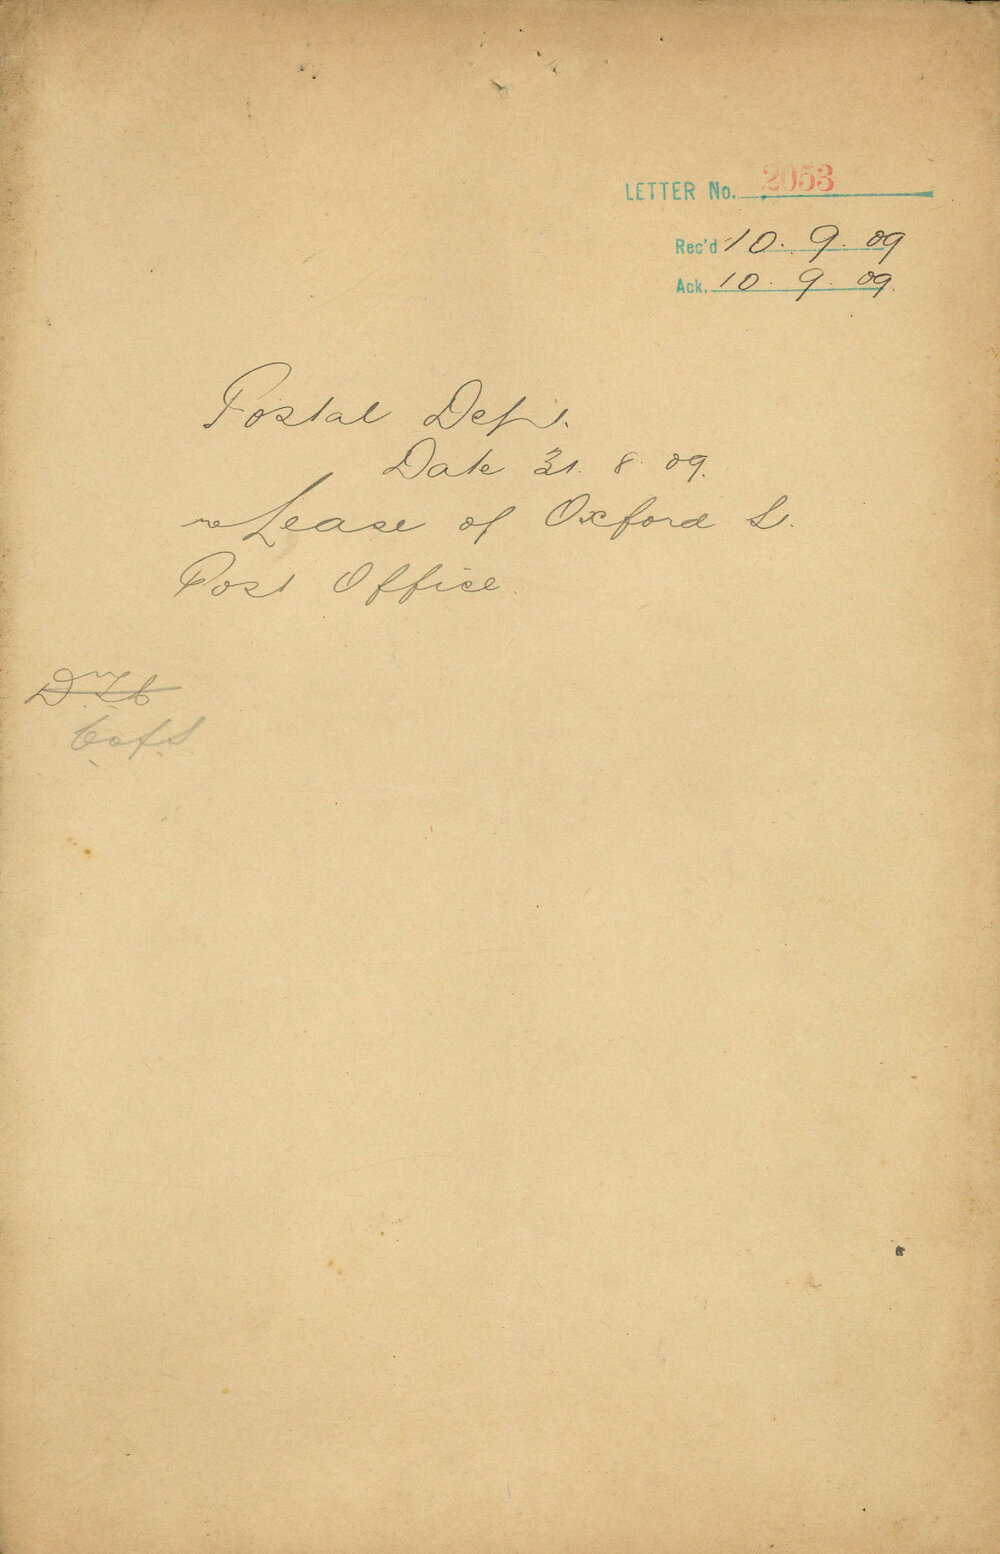 LETTER No. 2053
Rec'd 10. 9. 09
Ack. 10. 9. 09.
Postal Dept.
Date 31. 8. 09.
re Lease of Oxford St.
Post Office.
C of S